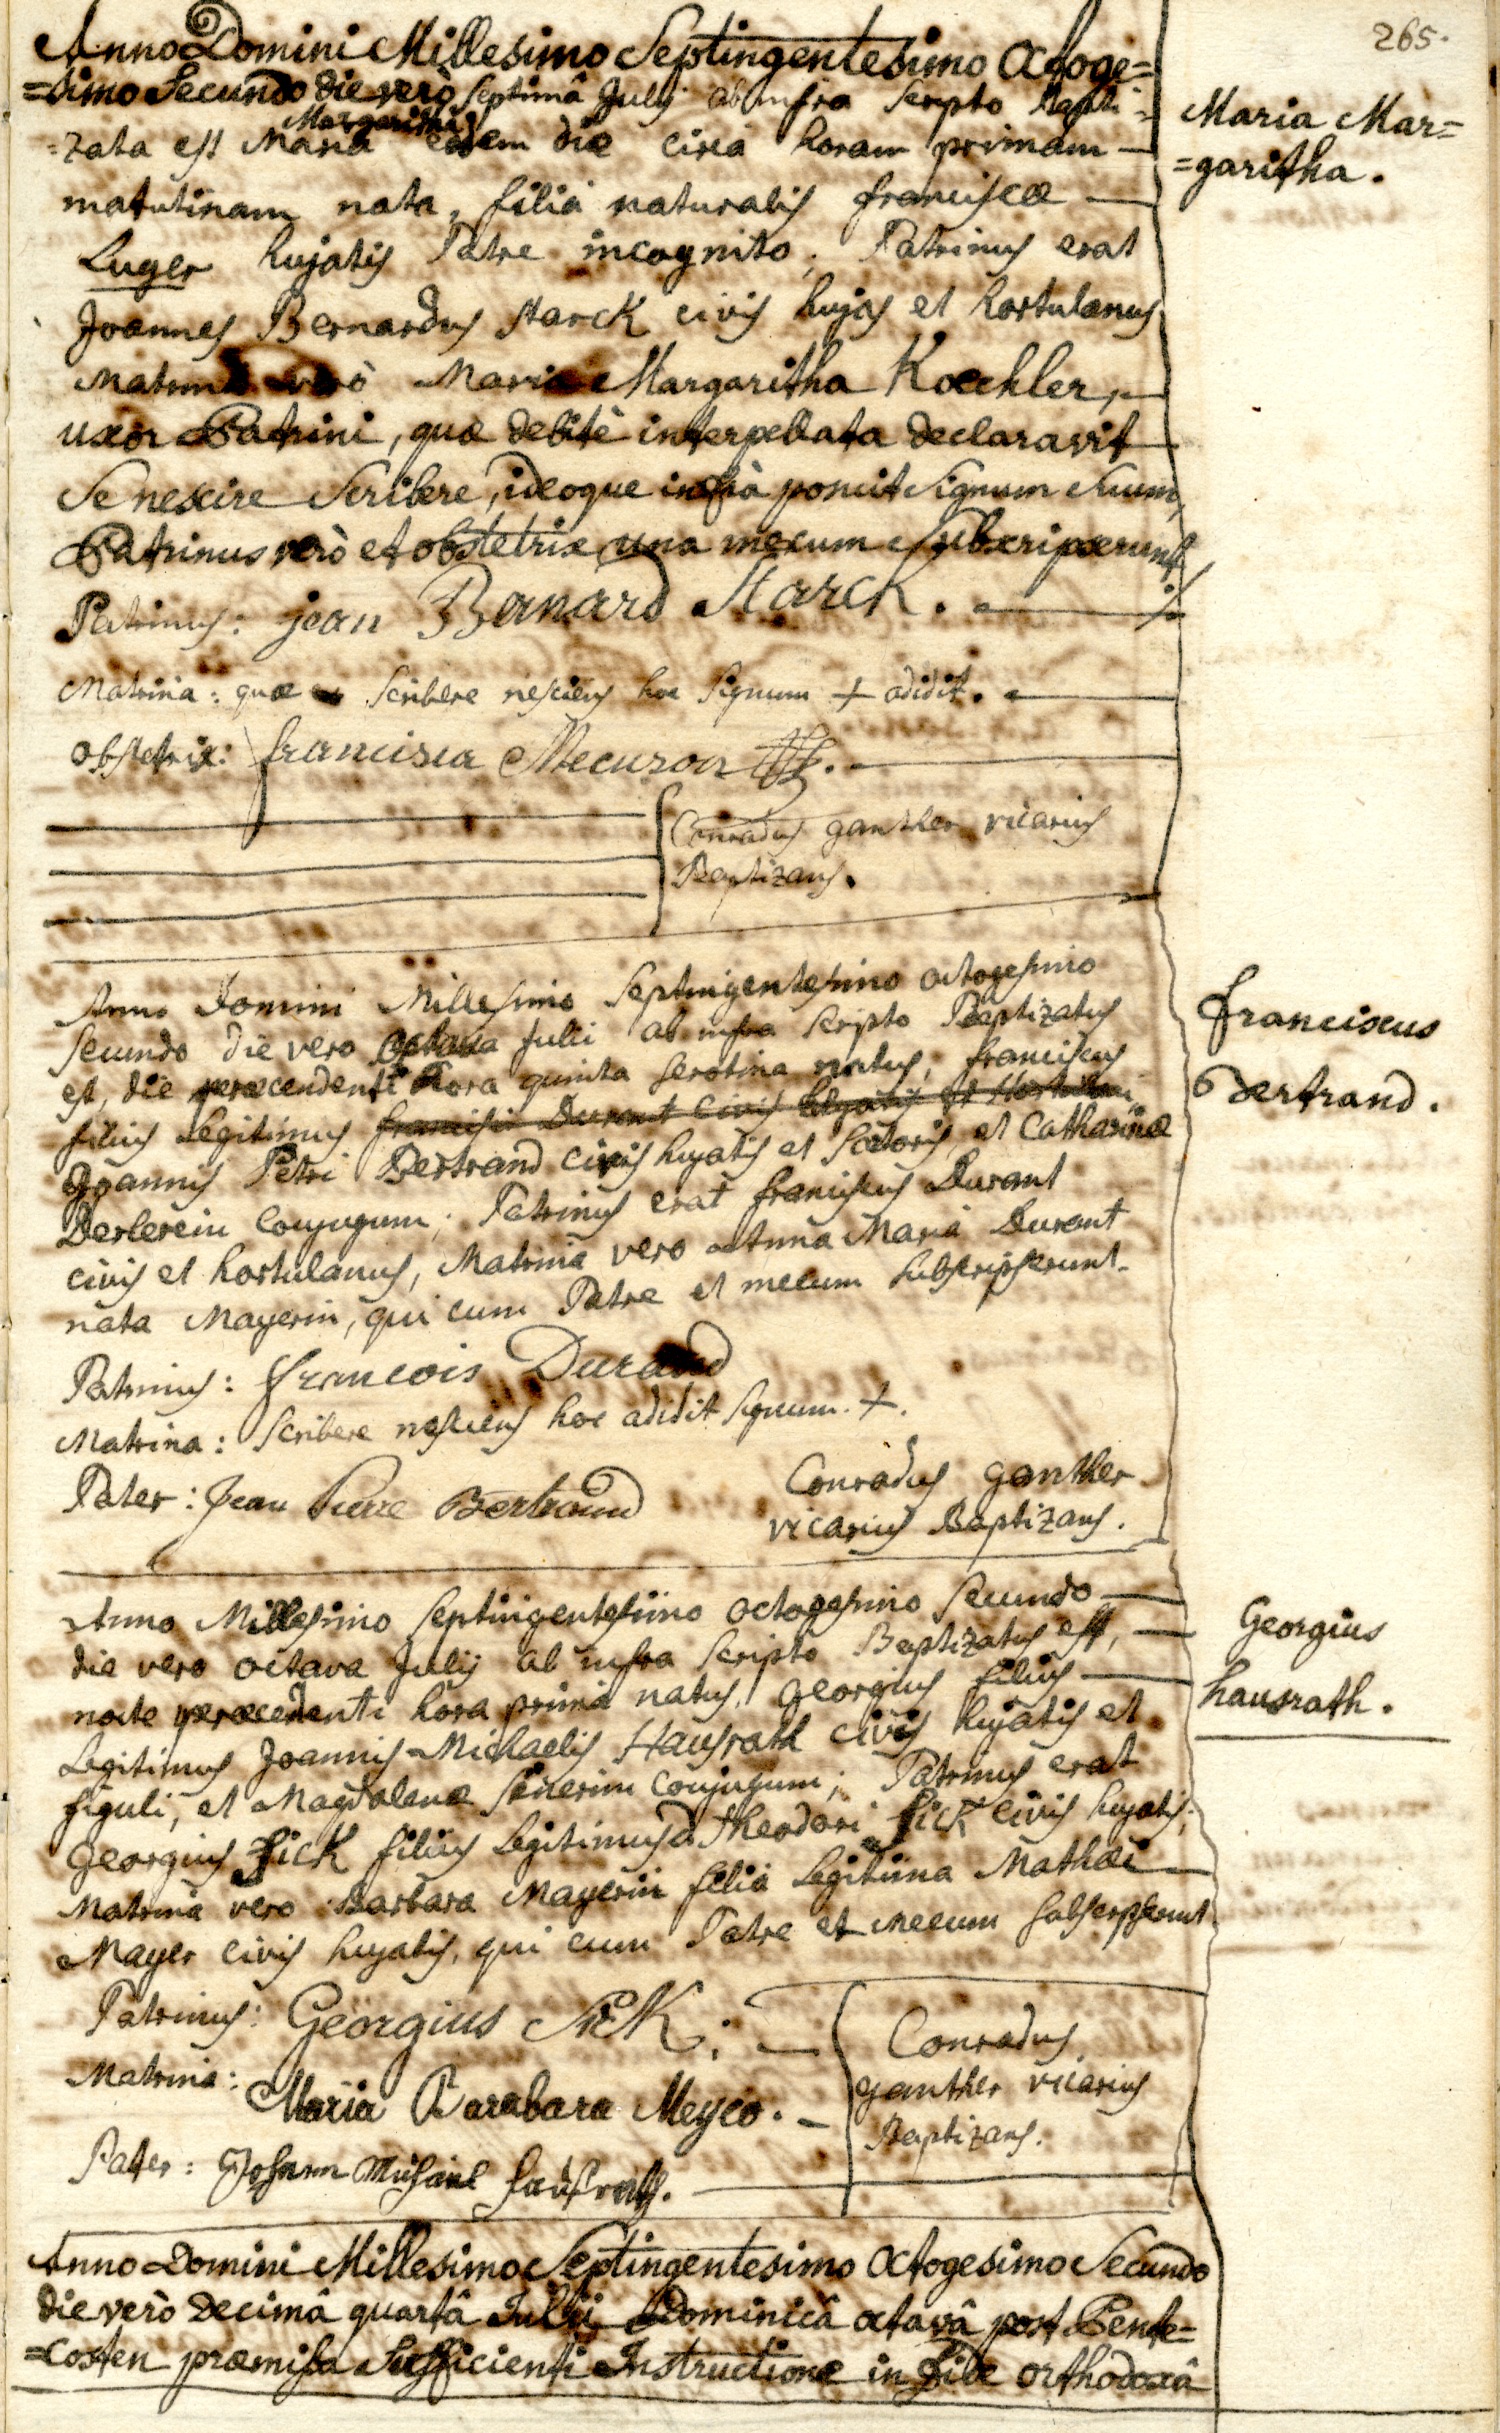 265.
Anno Domini Millesimo Septingentesimo Octoge=
=simo Secundo die verò Septimâ Julij ab infra scripto Bapti=
Margaritha
=zata est Maria eadem die circa horam primam
matutinam nata, filia naturalis franciscæ
Luger hujatis Patre incognito; Patrinus erat
Joannes Bernardus Starck civis hujas et hortulanus
Matrina verò Maria Margaritha Koechler,
uxor Patrini, quæ debitè interpellata declaravit
Se nescire Scribere, ideoque infrà ponuit Signum Suum,
Patrinus verò et obstetrix una mecum Subscripserunt
Maria Mar=
=garitha.
Patrinus: jean Bernard Starck.
Matrina: quæ Scribere nesciens hoc Signum + adidit.
obstetrix: francisca Mecuson
Conradus ganther vicarius
Baptizans.
Anno Domini Millesimo Septingentesimo octogesimo
Secundo die vero octava Julii ab infra scripto Baptizatus
est, die præcendenti hora quinta serotina natus, franciscus
filius Legitimus francisci Durant civis hujatis et Hortulani
Joannis Petri Bertrand civis hujatis et Sartoris, et Catharinæ
Derlerein Conjugum; Patrinus erat franciscus Durant
civis et hortulanus, Matrina vero Anna Maria Durant
nata Mayerin, qui cum Patre et mecum subscripserunt.
franciscus
Bertrand.
Patrinus: francois Durand
Matrina: Scribere nesciens hoc adidit Signum. +.
Pater: Jean Pierre Bertrand
Conradus ganther
vicarius Baptizans.
Anno Millesimo Septingentesimo octogesimo Secundo
die vero octava Julij ab infra scripto Baptizatus est,
nocte præcedenti hora prima natus, Georgius filius
Legitimus Joannis Michaelis Hausrath civis hujatis et
figuli, et Magdalenæ Conjugum; Patrinus erat
Georgius fick filius Legitimus Theodori fick civis hujatis;
Matrina vero Barbara Mayerin filia Legitima Mathæi
Mayer civis hujatis, qui cum Patre et mecum subscripserunt
Georgius
hausrath.
Patrinus: Georgius FicK:
Matrina: Maria Barabara Meyeo.
Pater: Johann Michael Haußrath.
Conradus
ganther vicarius
Baptizans.
Anno Domini Millesimo Septingentesimo Octogesimo Secundo
die verò Decimâ quartâ Julii Dominicâ octavâ post Pente=
=costen præmissa Sufficienti Instructione in fide orthodoxâ